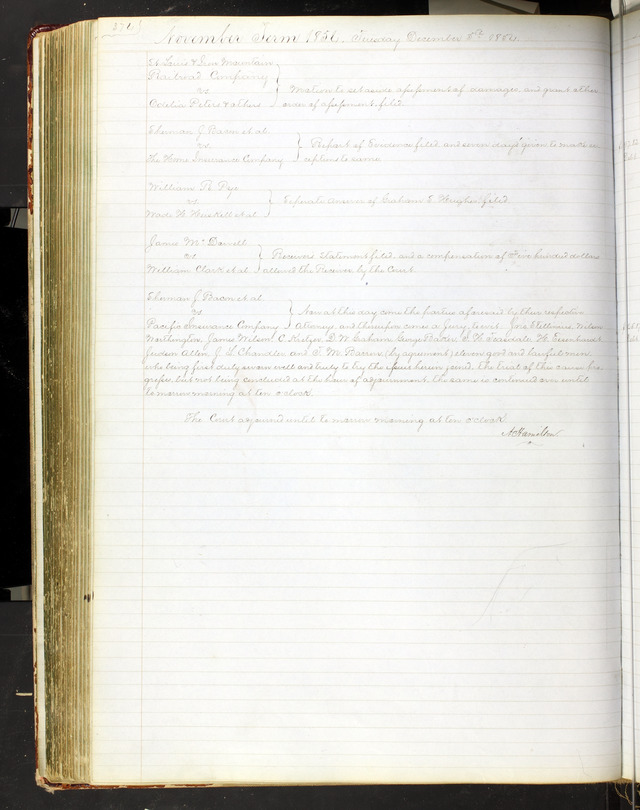 374
November Term 1856. Tuesday December 5th 1856.
St. Louis & Iron Mountain
Railroad Company
vs
Motion to set aside assessment of damages, and grant other
Odelia Peters & others
order of assessment, filed.
Sherman J. Bacon et al.
vs.
Report of Evidence filed and seven days given to make ex
The Home Insurance Company
ceptions to same
William R. Pye
vs
Separate answer of Graham L. Hughes filed.
Wade H. Huskell et al.
James McDowell
vs
Receiver's statement filed, and a compensation of Five hundred dollars
William Clark et al
allowed the Receiver by the Court.
Sherman J. Bacon et al
vs
Now at this day come the parties aforesaid by their respective
Pacific Insurance Company
Attorneys, and thereupon comes a jury, to wit, Wilson
Worthington, James Wilson, D. W. Graham, George Baker, H. Teasdale,
Judson Allen, J. L. Chandler and T. W. (by agreement) eleven good and lawful men,
who being first duly sworn well and truly to try the issues herein joined, the trial of this cause pro-
gressed, but not being concluded at the hour of adjournment, the same is continued over until
to morrow morning at ten o'clock.
The Court adjourned until to morrow morning at ten o'clock.
A Hamilton